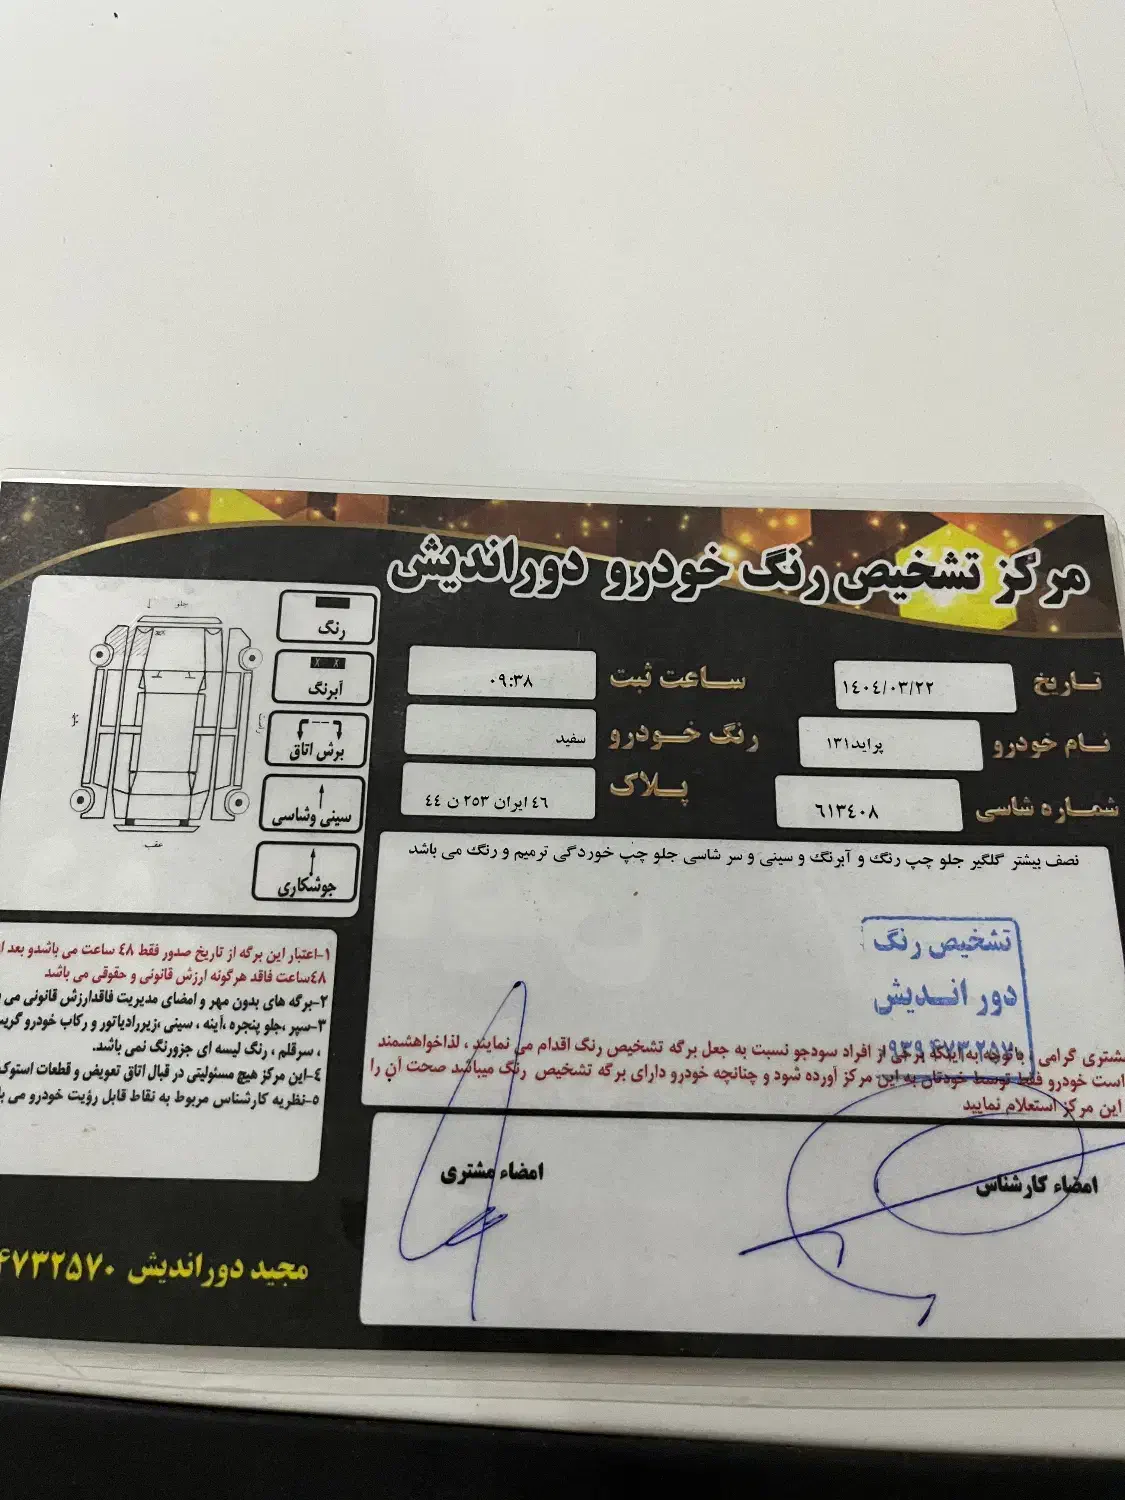 مرکز تشخیص رنگ خودرو دوراندیش
تاریخ ۱۴۰۴/۰۳/۲۲
ساعت ثبت ۰۹:۳۸
نام خودرو پراید۱۳۱
رنگ خودرو سفید
شماره شاسی ۶۱۳۴۰۸
پلاک ۴۶ ایران ۲۵۳ ن ۴۴
نصف بیشتر گلگیر جلو چپ رنگ و آبرنگ و سینی و سر شاسی جلو چپ خوردگی ترمیم و رنگ می باشد
تشخیص رنگ
دور اندیش
مشتری گرامی ، باتوجه به اینکه برخی از افراد سودجو نسبت به جعل برگه تشخیص رنگ اقدام می نمایند ، لذاخواهشمند
است خودرو فقط توسط خودتان به این مرکز آورده شود و چنانچه خودرو دارای برگه تشخیص رنگ میباشد صحت آن را
این مرکز استعلام نمایید
امضاء کارشناس
امضاء مشتری
جلو
عقب
رنگ
X X
آبرنگ
برش اتاق
سینی وشاسی
جوشکاری
۱-اعتبار این برگه از تاریخ صدور فقط ۴۸ ساعت می باشدو بعد از
۴۸ساعت فاقد هرگونه ارزش قانونی و حقوقی می باشد
۲-برگه های بدون مهر و امضای مدیریت فاقدارزش قانونی می
۳-سپر ،جلو پنجره ،آینه ، سینی ،زیررادیاتور و رکاب خودرو
، سرقلم ، رنگ لیسه ای جزورنگ نمی باشد.
۴-این مرکز هیچ مسئولیتی در قبال اتاق تعویض و قطعات استوک
۵-نظریه کارشناس مربوط به نقاط قابل رؤیت خودرو می
مجید دوراندیش ۴۷۳۲۵۷۰